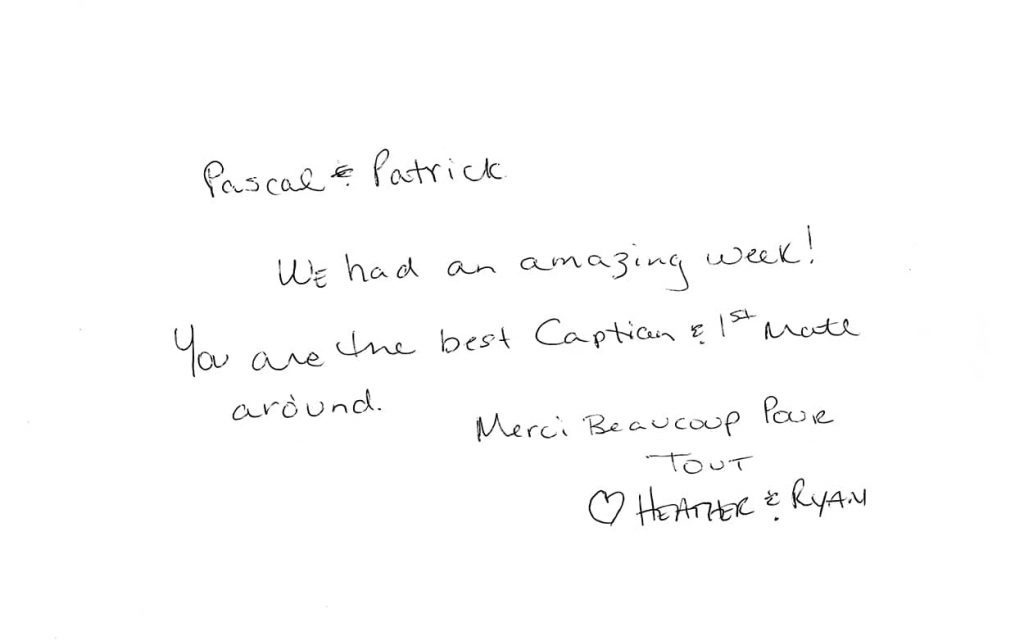 Pascal & Patrick
We had an amazing week!
You are the best Captian & 1st Mate
around.
Merci Beaucoup Pour
Tout
♡ HEATHER & RYAN